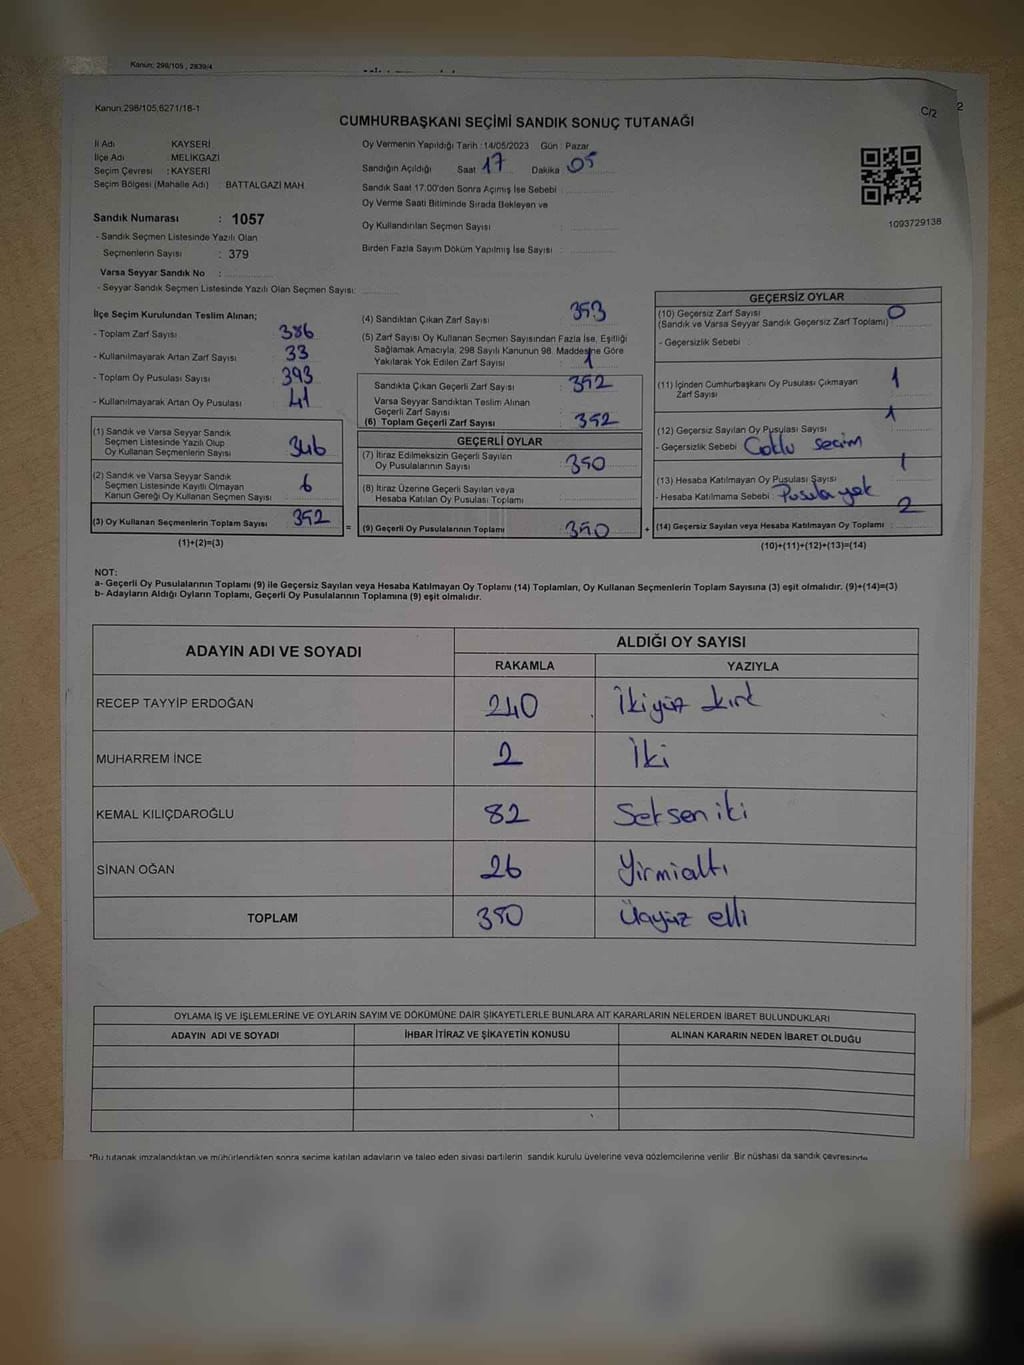 Kanun: 298/105, 2839/4
Kanun.298/105,6271/18-1
C/2
2
CUMHURBAŞKANI SEÇİMİ SANDIK SONUÇ TUTANAĞI
İl Adı KAYSERİ
İlçe Adı : MELİKGAZİ
Seçim Çevresi : KAYSERİ
Seçim Bölgesi (Mahalle Adı) : BATTALGAZİ MAH.
Sandık Numarası : 1057
- Sandık Seçmen Listesinde Yazılı Olan
Seçmenlerin Sayısı : 379
Varsa Seyyar Sandık No :
- Seyyar Sandık Seçmen Listesinde Yazılı Olan Seçmen Sayısı:
Oy Vermenin Yapıldığı Tarih :14/05/2023 Gün : Pazar
Sandığın Açıldığı Saat : 17 Dakika : 05
Sandık Saat 17.00'den Sonra Açımış İse Sebebi :
Oy Verme Saati Bitiminde Sırada Bekleyen ve
Oy Kullandırılan Seçmen Sayısı :
Birden Fazla Sayım Döküm Yapılmış İse Sayısı :
1093729138
İlçe Seçim Kurulundan Teslim Alınan;
- Toplam Zarf Sayısı : 386
- Kullanılmayarak Artan Zarf Sayısı : 33
- Toplam Oy Pusulası Sayısı : 393
- Kullanılmayarak Artan Oy Pusulası : 41
(1) Sandık ve Varsa Seyyar Sandık
Seçmen Listesinde Yazılı Olup
Oy Kullanan Seçmenlerin Sayısı : 346
(2) Sandık ve Varsa Seyyar Sandık
Seçmen Listesinde Kayıtlı Olmayan
Kanun Gereği Oy Kullanan Seçmen Sayısı : 6
(3) Oy Kullanan Seçmenlerin Toplam Sayısı : 352
(1)+(2)=(3)
=
(4) Sandıktan Çıkan Zarf Sayısı : 353
(5) Zarf Sayısı Oy Kullanan Seçmen Sayısından Fazla İse, Eşitliği
Sağlamak Amacıyla, 298 Sayılı Kanunun 98. Maddesine Göre
Yakılarak Yok Edilen Zarf Sayısı : 1
Sandıkta Çıkan Geçerli Zarf Sayısı : 352
Varsa Seyyar Sandıktan Teslim Alınan
Geçerli Zarf Sayısı :
(6) Toplam Geçerli Zarf Sayısı : 352
GEÇERLİ OYLAR
(7) İtiraz Edilmeksizin Geçerli Sayılan
Oy Pusulalarının Sayısı : 350
(8) İtiraz Üzerine Geçerli Sayılan veya
Hesaba Katılan Oy Pusulası Toplamı :
(9) Geçerli Oy Pusulalarının Toplamı : 350
+
GEÇERSİZ OYLAR
(10) Geçersiz Zarf Sayısı
(Sandık ve Varsa Seyyar Sandık Geçersiz Zarf Toplamı) : 0
- Geçersizlik Sebebi :
(11) İçinden Cumhurbaşkanı Oy Pusulası Çıkmayan
Zarf Sayısı : 1
(12) Geçersiz Sayılan Oy Pusulası Sayısı : 1
- Geçersizlik Sebebi : Çoklu secim
(13) Hesaba Katılmayan Oy Pusulası Sayısı : 1
- Hesaba Katılmama Sebebi : Pusula yok
(14) Geçersiz Sayılan veya Hesaba Katılmayan Oy Toplamı : 2
(10)+(11)+(12)+(13)=(14)
NOT:
a- Geçerli Oy Pusulalarının Toplamı (9) ile Geçersiz Sayılan veya Hesaba Katılmayan Oy Toplamı (14) Toplamları, Oy Kullanan Seçmenlerin Toplam Sayısına (3) eşit olmalıdır. (9)+(14)=(3)
b- Adayların Aldığı Oyların Toplamı, Geçerli Oy Pusulalarının Toplamına (9) eşit olmalıdır.
ADAYIN ADI VE SOYADI ALDIĞI OY SAYISI
RAKAMLA YAZIYLA
RECEP TAYYİP ERDOĞAN 240 İkiyüz kırk
MUHARREM İNCE 2 İki
KEMAL KILIÇDAROĞLU 82 Seksen iki
SİNAN OĞAN 26 Yirmialtı
TOPLAM 350 Üçyüz elli
OYLAMA İŞ VE İŞLEMLERİNE VE OYLARIN SAYIM VE DÖKÜMÜNE DAİR ŞİKAYETLERLE BUNLARA AİT KARARLARIN NELERDEN İBARET BULUNDUKLARI
ADAYIN ADI VE SOYADI İHBAR İTİRAZ VE ŞİKAYETİN KONUSU ALINAN KARARIN NEDEN İBARET OLDUĞU
*Bu tutanak imzalandıktan ve mühürlendikten sonra seçime katılan adayların ve talep eden siyasi partilerin sandık kurulu üyelerine veya gözlemcilerine verilir. Bir nüshası da sandık çevresinde